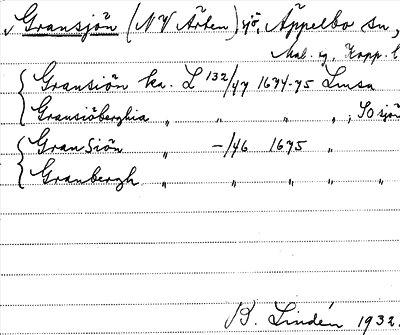 Gransjön (NV Ärten) sjö, Äppelbo sn,
Mal. Kopp. l
Gransiön ka. L 132/47 1674-75 Lmsa
Gransiöberghia " " " " ; SO sjön
GranSiön " -/46 1675 "
Granbergh " " " " "
B. Lindén 1932.